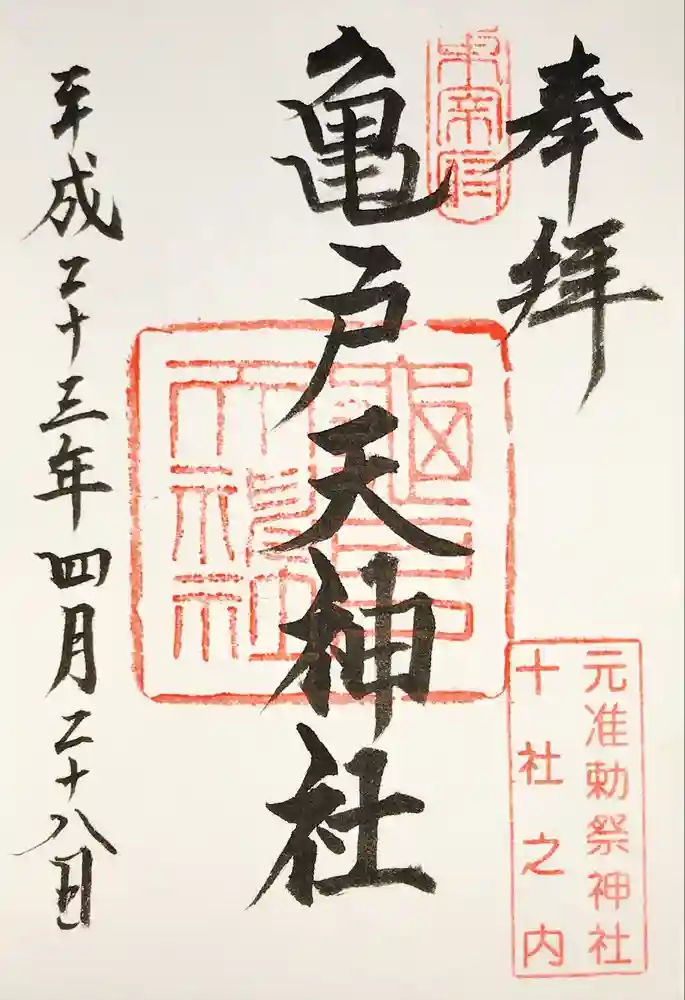 奉拝
元准勅祭神社
十社之内
東宰府
亀戸天神社
平成二十三年四月二十八日